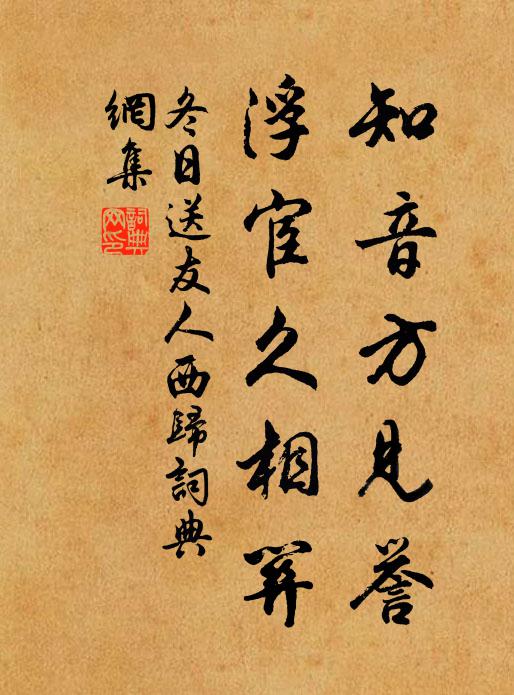 知音方見誉
浮宦久相
冬日送友人西歸詞典
網集
詞典
网印